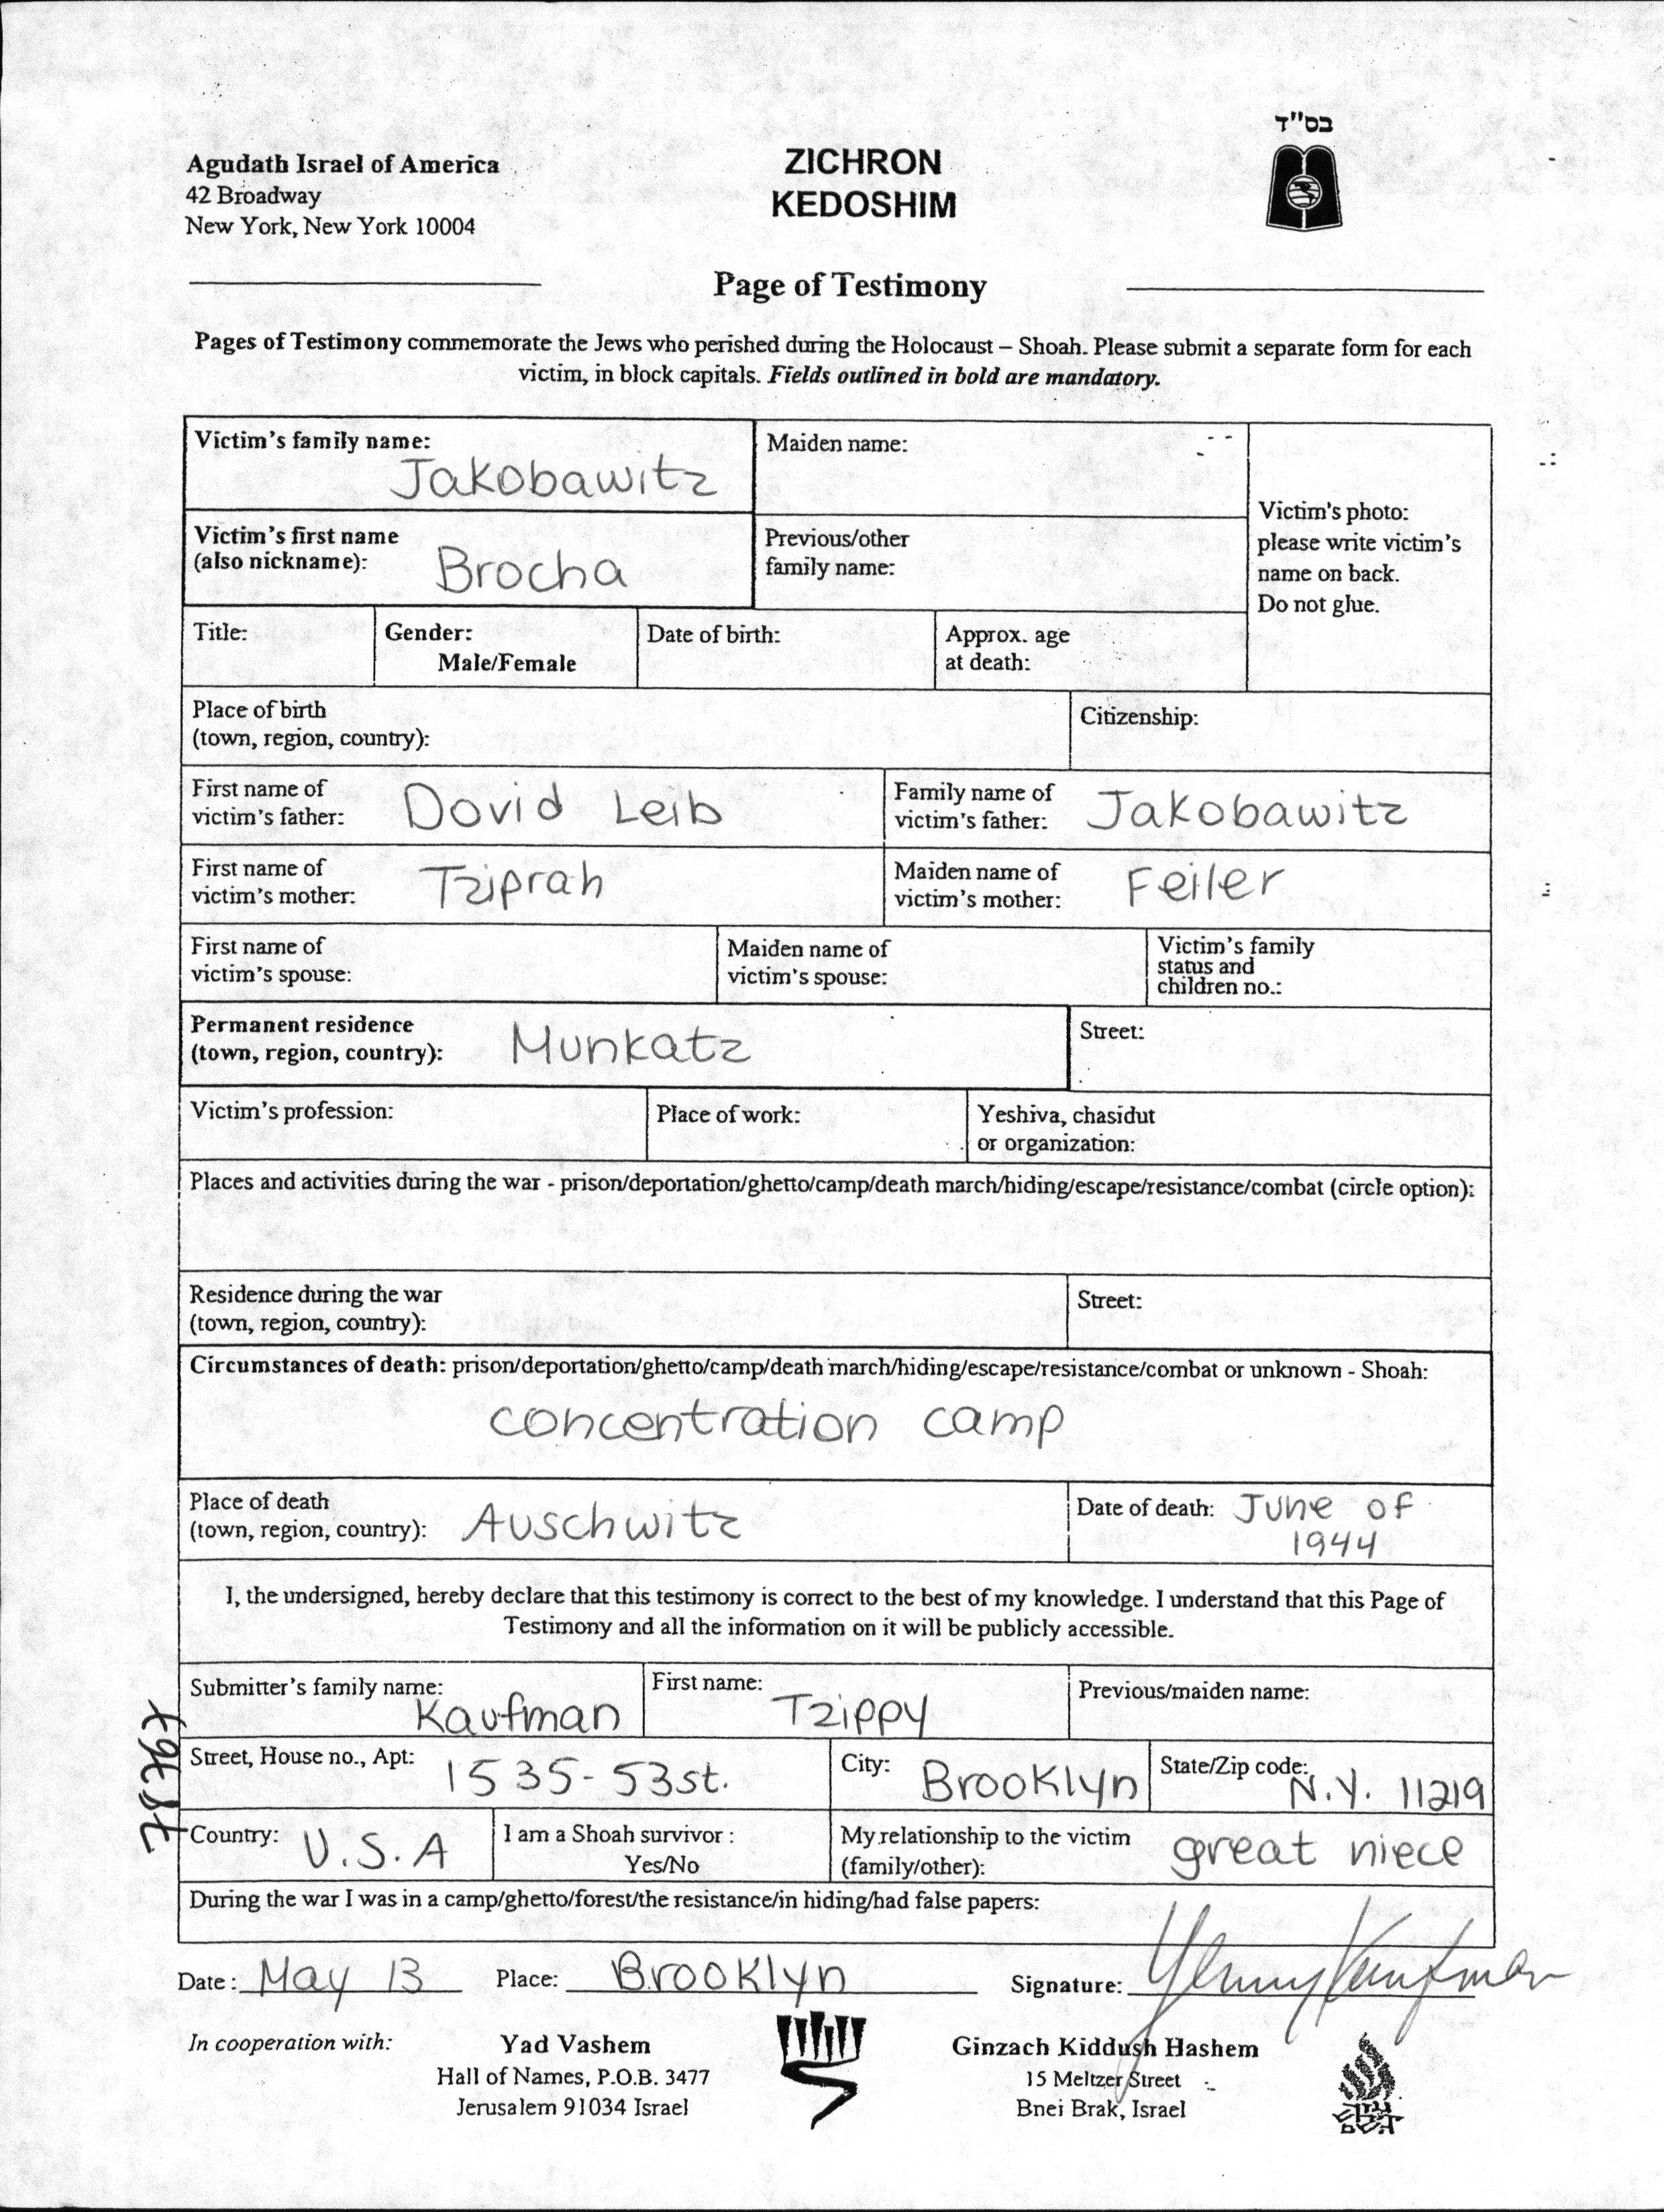 בס"ד
Agudath Israel of America
42 Broadway
New York, New York 10004
ZICHRON
KEDOSHIM
Page of Testimony
Pages of Testimony commemorate the Jews who perished during the Holocaust – Shoah. Please submit a separate form for each
victim, in block capitals. Fields outlined in bold are mandatory.
Victim's family name: Jakobawitz
Maiden name:
Victim's photo:
please write victim's
name on back.
Do not glue.
Victim's first name
(also nickname): Brocha
Previous/other
family name:
Title:
Gender:
Male/Female
Date of birth:
Approx. age
at death:
Place of birth
(town, region, country):
Citizenship:
First name of
victim's father: Dovid Leib
Family name of
victim's father: Jakobawitz
First name of
victim's mother: Tziprah
Maiden name of
victim's mother: Feiler
First name of
victim's spouse:
Maiden name of
victim's spouse:
Victim's family
status and
children no.:
Permanent residence
(town, region, country): Munkatz
Street:
Victim's profession:
Place of work:
Yeshiva, chasidut
or organization:
Places and activities during the war - prison/deportation/ghetto/camp/death march/hiding/escape/resistance/combat (circle option):
Residence during the war
(town, region, country):
Street:
Circumstances of death: prison/deportation/ghetto/camp/death march/hiding/escape/resistance/combat or unknown - Shoah:
concentration camp
Place of death
(town, region, country): Auschwitz
Date of death: June of
1944
I, the undersigned, hereby declare that this testimony is correct to the best of my knowledge. I understand that this Page of
Testimony and all the information on it will be publicly accessible.
Submitter's family name: Kaufman
First name: Tzippy
Previous/maiden name:
Street, House no., Apt: 1535-53st.
City: Brooklyn
State/Zip code: N.Y. 11219
Country: U.S.A
I am a Shoah survivor :
Yes/No
My relationship to the victim
(family/other): great niece
During the war I was in a camp/ghetto/forest/the resistance/in hiding/had false papers:
Date: May 13
Place: Brooklyn
Signature: Kaufman
In cooperation with:
Yad Vashem
Hall of Names, P.O.B. 3477
Jerusalem 91034 Israel
Ginzach Kiddush Hashem
15 Meltzer Street
Bnei Brak, Israel